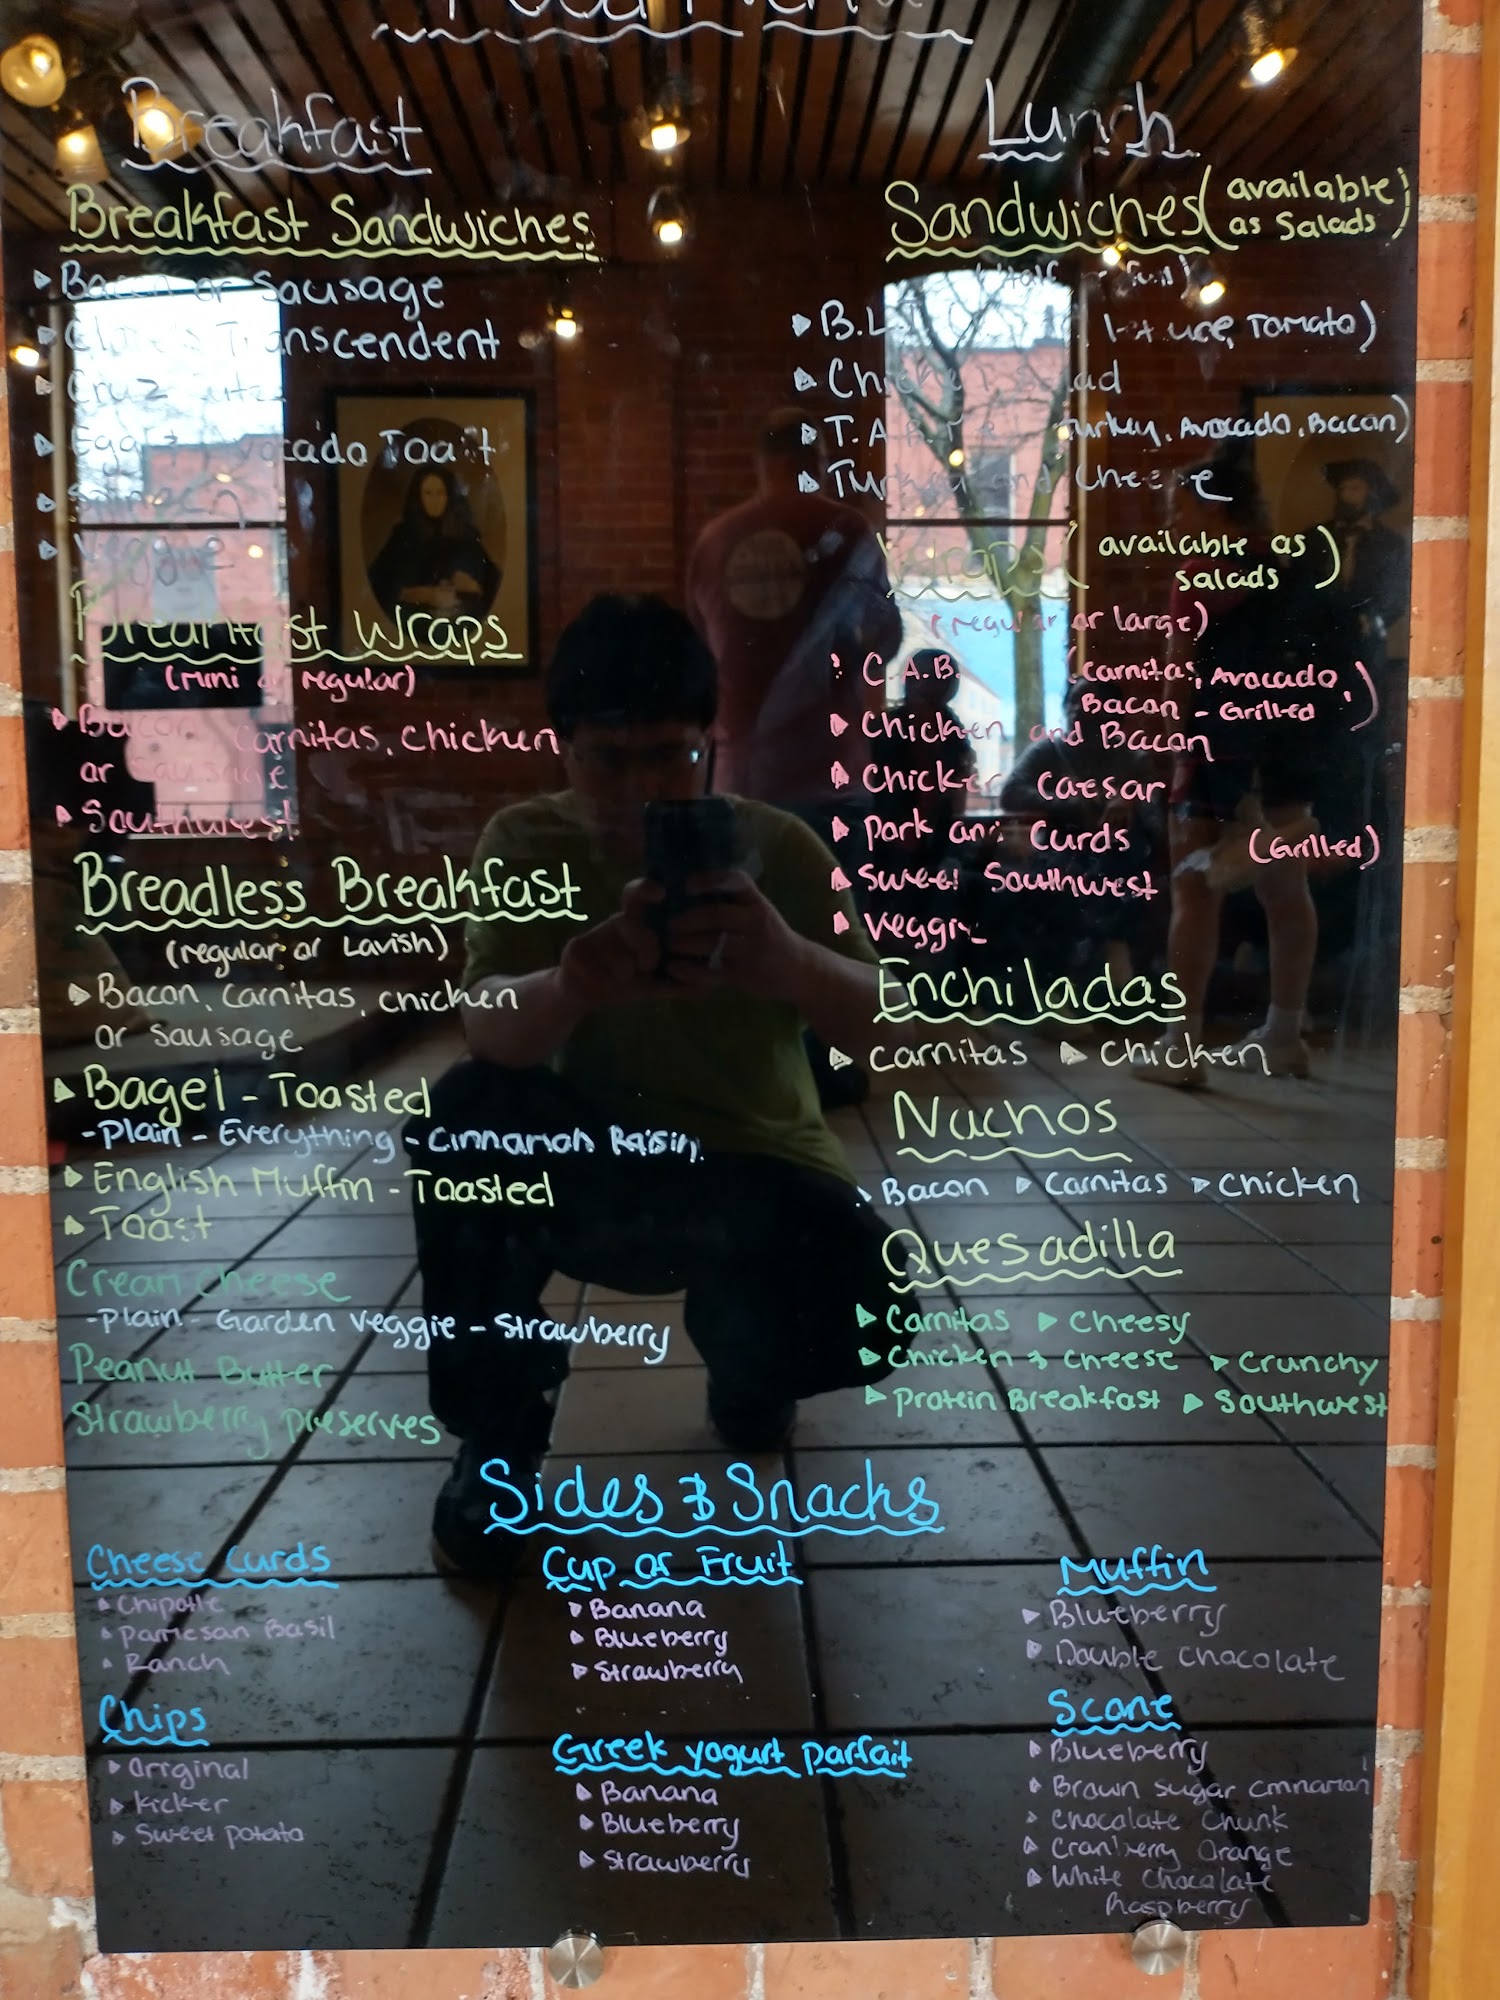 Food Menu
Breakfast
Breakfast Sandwiches
Bacon or Sausage
Transcendent
Cruz
Egg & Avocado Toast
Veggie
Breakfast Wraps
(mini or regular)
Bacon, Carnitas, Chicken
or Sausage
Southwest
Breadless Breakfast
(regular or Lavish)
Bacon, Carnitas, Chicken
or Sausage
Bagel - Toasted
- Plain - Everything - Cinnamon Raisin
English Muffin - Toasted
Toast
Cream Cheese
- Plain - Garden Veggie - Strawberry
Peanut Butter
Strawberry Preserves
Lunch
Sandwiches (available
as Salads)
(Half or full)
B.L. Lettuce, Tomato)
Chicken Salad
T.A.B. Turkey, Avocado, Bacon)
Turkey and Cheese
Wraps (available as
salads)
(regular or large)
C.A.B. (Carnitas, Avocado,
Bacon - Grilled)
Chicken and Bacon
Chicken Caesar
Pork and Curds (Grilled)
Sweet Southwest
Veggie
Enchiladas
Carnitas Chicken
Nachos
Bacon Carnitas Chicken
Quesadilla
Carnitas Cheesy
Chicken & Cheese Crunchy
Protein Breakfast Southwest
Sides & Snacks
Cheese Curds
Chipotle
Parmesan Basil
Ranch
Chips
Original
Kicker
Sweet Potato
Cup of Fruit
Banana
Blueberry
Strawberry
Greek yogurt parfait
Banana
Blueberry
Strawberry
Muffin
Blueberry
Double Chocolate
Scone
Blueberry
Brown sugar cinnamon
Chocolate Chunk
Cranberry Orange
White Chocolate
Raspberry